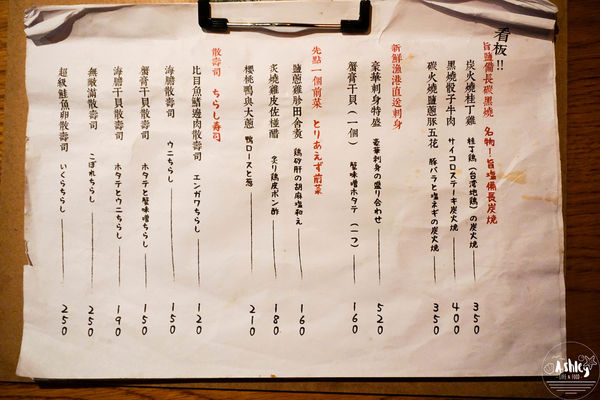 看板!!
旨鹽備長碳黑燒 名物!旨塩備長炭焼
炭火燒桂丁雞 桂丁鶏(台湾地鶏)の炭火焼 350
黑燒骰子牛肉 サイコロステーキ炭火焼 400
碳火燒鹽蔥豚五花 豚バラと塩ネギの炭火焼 350
新鮮漁港直送刺身
豪華刺身特盛 豪華刺身の盛り合わせ 520
蟹膏干貝(一個) 蟹味噌ホタテ(一つ) 160
先點一個前菜 とりあえず前菜
鹽蔥雞胗田舍煮 鶏砂肝の胡麻塩和え 160
炙燒雞皮佐柚醋 炙り鶏皮ポン酢 180
櫻桃鴨與大蔥 鴨ロースと葱 210
散壽司 ちらし寿司
比目魚鰭邊肉散壽司 エンガワちらし 120
海膽散壽司 ウニちらし 150
蟹膏干貝散壽司 ホタテと蟹味噌ちらし 150
海膽干貝散壽司 ホタテとウニちらし 190
無敵滿散壽司 こぼれちらし 250
超級鮭魚卵散壽司 いくらちらし 250
Ashley
LIFE & FOOD